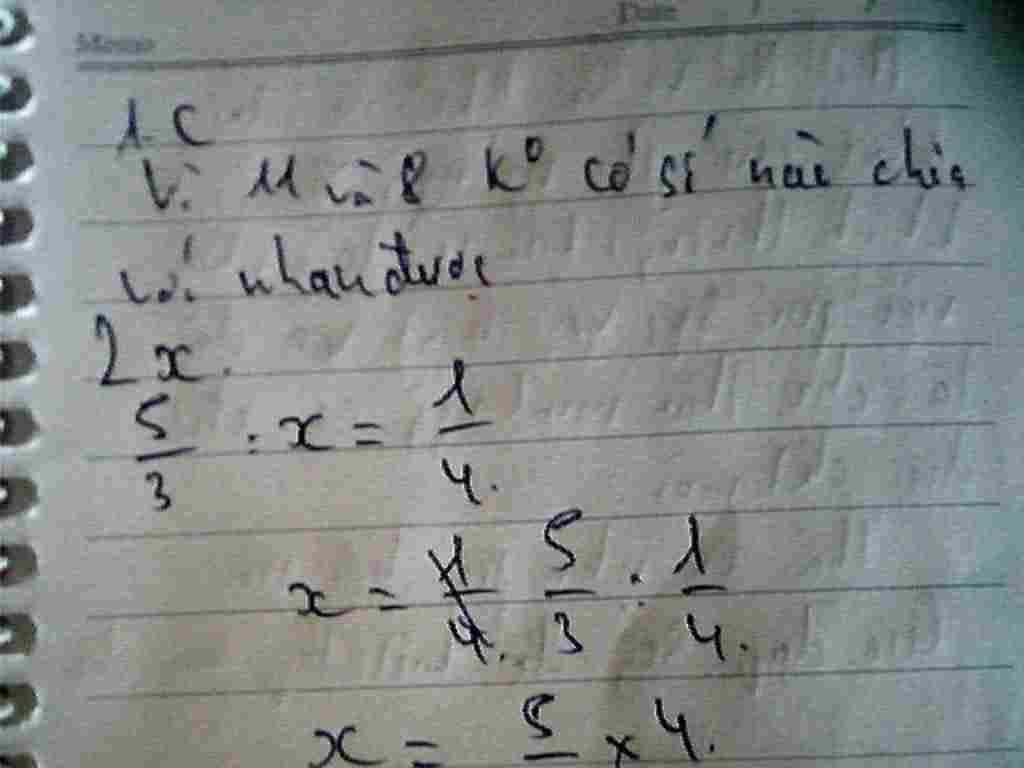 Memo Date
1. C
Vì 11 và 8 k° có số nào chia
với nhau được
2 x.
5/3 : x = 1/4.
x = 5/3 : 1/4.
x = 5 × 4.